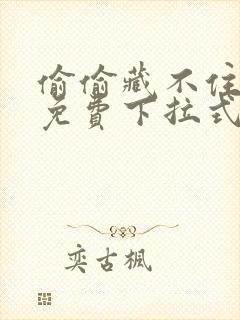 偷偷藏不住
免費下拉式
奕古楓